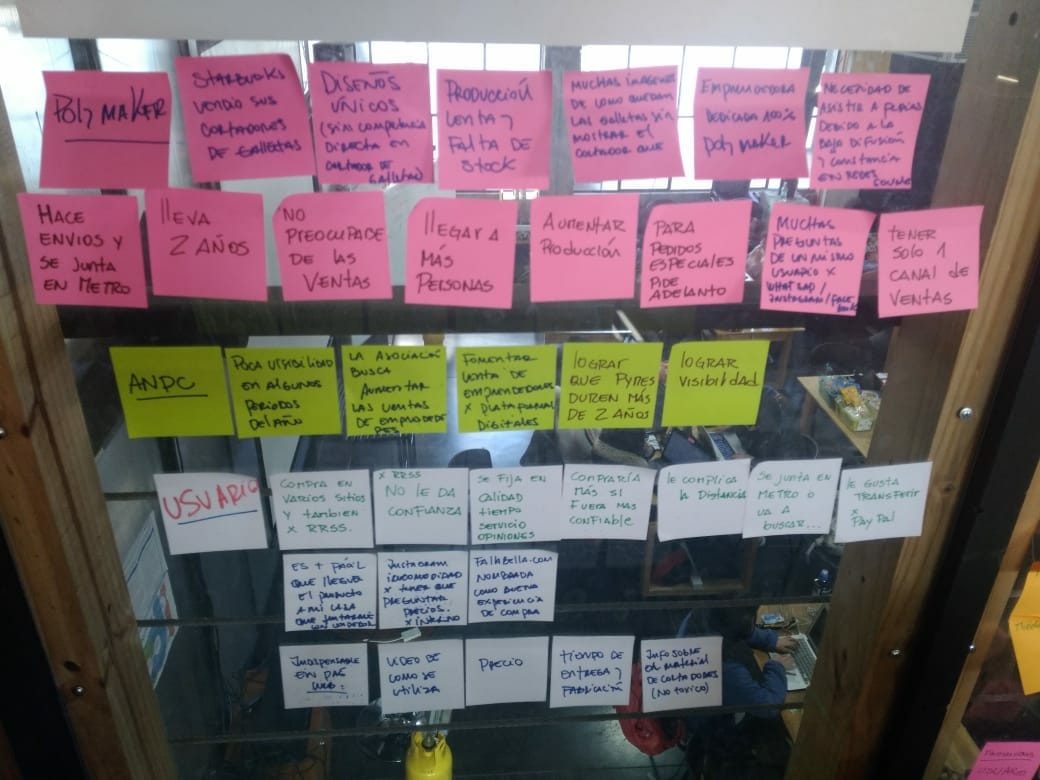 Poly MAKER
STARBUCKS
VENDIO SUS
CORTADORES
DE GALLETAS
DISEÑOS
ÚNICOS
(SIN COMPETENCIA
DIRECTA EN
CORTADOR DE
GALLETAS)
PRODUCCIÓN
LENTA Y
FALTA DE
STOCK
MUCHAS IMAGENES
DE COMO QUEDAN
LAS GALLETAS SIN
MOSTRAR EL
CORTADOR QUE
EMPRENDEDORA
DEDICADA 100%
Poly MAKER
NECESIDAD DE
ASISTIR A FERIAS
DEBIDO A LA
BAJA DIFUSIÓN
Y CONSTANCIA
EN REDES
HACE
ENVIOS Y
SE JUNTA
EN METRO
LLEVA
2 AÑOS
NO
PREOCUPADE
DE LAS
VENTAS
LLEGAR A
MÁS
PERSONAS
AUMENTAR
PRODUCCIÓN
PARA
PEDIDOS
ESPECIALES
PIDE
ADELANTO
MUCHAS
PREGUNTAS
DE UN MISMO
USUARIO X
WHATSAP/
INSTAGRAM/FACE
BOOK
TENER
SOLO 1
CANAL DE
VENTAS
ANPC
POCA VISIBILIDAD
EN ALGUNOS
PERIODOS
DEL AÑO
LA ASOCIACIÓN
BUSCA
AUMENTAR
LAS VENTAS
DE
FOMENTAR
VENTA DE
EMPRENDEDORES
X PLATAFORMAS
DIGITALES
LOGRAR
QUE PYMES
DUREN MÁS
DE 2 AÑOS
LOGRAR
VISIBILIDAD
USUARIO
COMPRA EN
VARIOS SITIOS
Y TAMBIEN
X RRSS.
X RRSS
NO LE DA
CONFIANZA
SE FIJA EN
CALIDAD
TIEMPO
SERVICIO
OPINIONES
COMPRARÍA
MÁS SI
FUERA MAS
CONFIABLE
LE COMPLICA
LA DISTANCIA
SE JUNTA EN
METRO O
VA A
BUSCAR...
LE GUSTA
TRANSFERIR
X
PAYPAL
ES + FÁCIL
QUE LLEGUE
EL PRODUCTO
A MI CASA
QUE JUNTARME
CON VENDEDOR
INSTAGRAM
INCOMODIDAD
X TENER QUE
PREGUNTAR
PRECIOS.
X INTERNO
FALABELLA.COM
NOMBRADA
COMO BUENA
EXPERIENCIA
DE COMPRA
INDISPENSABLE
EN PAG
WEB:
VIDEO DE
COMO SE
UTILIZA
PRECIO
TIEMPO DE
ENTREGA Y
FABRICACIÓN
INFO SOBRE
EL MATERIAL
DE CORTADORES
(NO TOXICO)
USUARIO